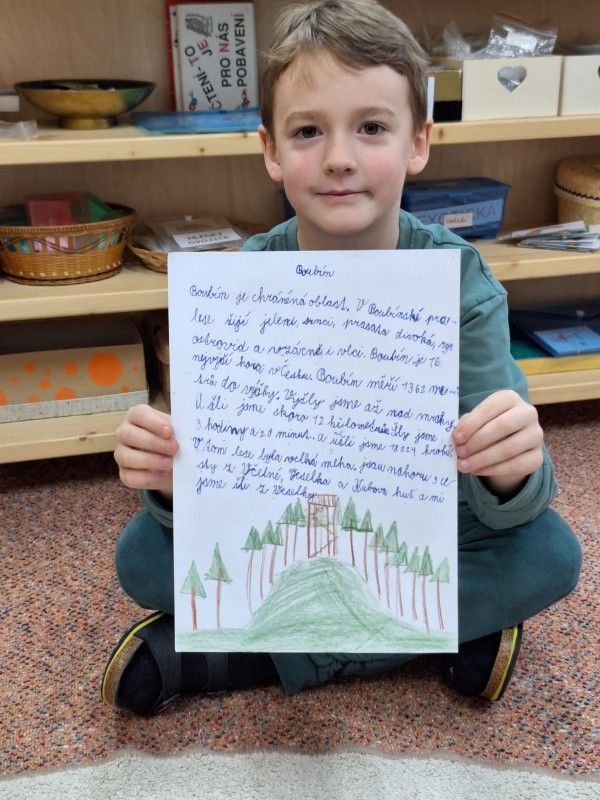 ČTENÍ-TO
JE
PRO NÁS
POBAVENÍ
Boubín
Boubín je chráněná oblast. V Boubínské pra-
lese žijí jeleni, srnci, prasata divoká, rys
ostrovid a vozácně i vlci. Boubín je 16
nejvyšší hora v Česku. Boubín měří 1362 me-
trů do výšky. Vyšly jsme až nad mraky.
Ušli jsme skoro 12 kilometrů. Šly jsme
3 hodiny a 20 minut. a ušli jsme 18224 kroků.
V tom lese byla velká mlha. jsou nahoru 3 ce-
sty z Včelné, Veselka a Kubova huť a mi
jsme šli z Veselky.